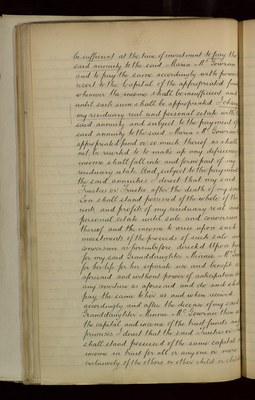 be sufficient at the time of investment to pay the
said annuity to the said Maria Mc Gowran
and to pay the same accordingly with power
resort to the Capital of the appropriated fund
whenever the income shall be insufficient and
until such sum shall be appropriated I charge
my residuary real and personal estate with
said annuity and subject to the payment of
said annuity to the said Maria Mc Gowran
appropriated fund or so much thereof as shall
not be resorted to to make up any deficiency
income shall fall into and form part of my
residuary estate And, subject to the payment
the said annuities I direct that my said
Trustees or Trustee after the death of my said
Son shall stand possessed of the whole of the
rents and profits of my residuary real and
personal estate until sale and conversion
thereof and the income to arise upon such
investments of the proceeds of such sale and
conversion as hereinbefore directed Upon trust
for my said Granddaughter Minnie Mc Gowran
for her life for her separate use and benefit as
aforesaid and without power of anticipation
any income as aforesaid and do and shall
pay the same to her as and when received
accordingly and after the decease of my said
Granddaughter Minnie Mc Gowran then as
the capital and income of the trust funds and
premises I direct that the said Trustees or
shall stand possessed of the same capital
income in trust for all or any one or more
exclusively of the others or other child or